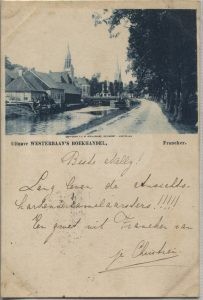 Uitgave WESTERBAAN'S BOEKHANDEL, Franeker.
Beste Nelly!
Lang leven de Ansichts-
kartenverzamelaarsters!!!!!
Een groet uit Franeker van
je Christien